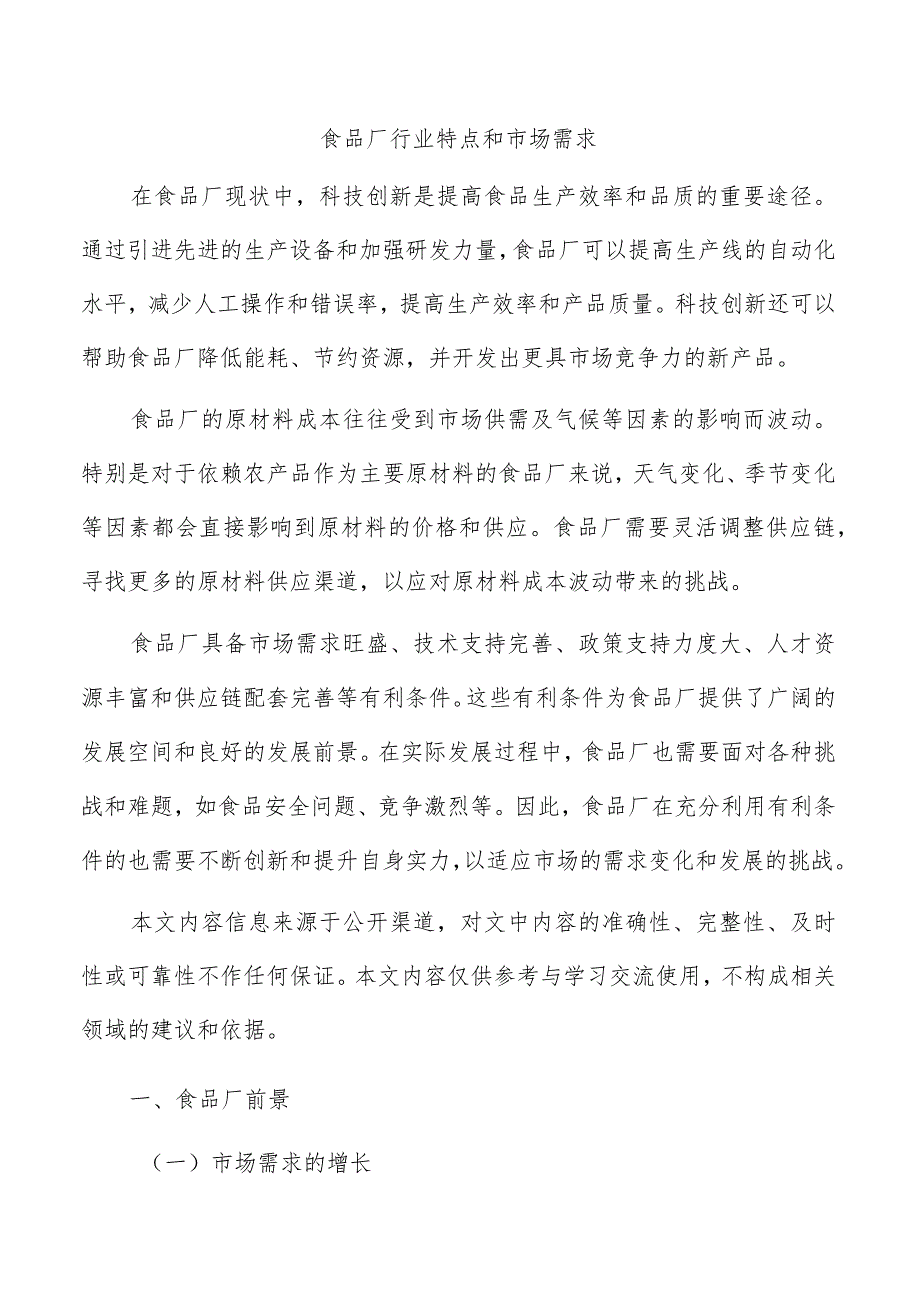 食品厂行业特点和市场需求
在食品厂现状中，科技创新是提高食品生产效率和品质的重要途径。
通过引进先进的生产设备和加强研发力量，食品厂可以提高生产线的自动化
水平，减少人工操作和错误率，提高生产效率和产品质量。科技创新还可以
帮助食品厂降低能耗、节约资源，并开发出更具市场竞争力的新产品。
食品厂的原材料成本往往受到市场供需及气候等因素的影响而波动。
特别是对于依赖农产品作为主要原材料的食品厂来说，天气变化、季节变化
等因素都会直接影响到原材料的价格和供应。食品厂需要灵活调整供应链，
寻找更多的原材料供应渠道，以应对原材料成本波动带来的挑战。
食品厂具备市场需求旺盛、技术支持完善、政策支持力度大、人才资
源丰富和供应链配套完善等有利条件。这些有利条件为食品厂提供了广阔的
发展空间和良好的发展前景。在实际发展过程中，食品厂也需要面对各种挑
战和难题，如食品安全问题、竞争激烈等。因此，食品厂在充分利用有利条
件的也需要不断创新和提升自身实力，以适应市场的需求变化和发展的挑战。
本文内容信息来源于公开渠道，对文中内容的准确性、完整性、及时
性或可靠性不作任何保证。本文内容仅供参考与学习交流使用，不构成相关
领域的建议和依据。
一、食品厂前景
（一）市场需求的增长